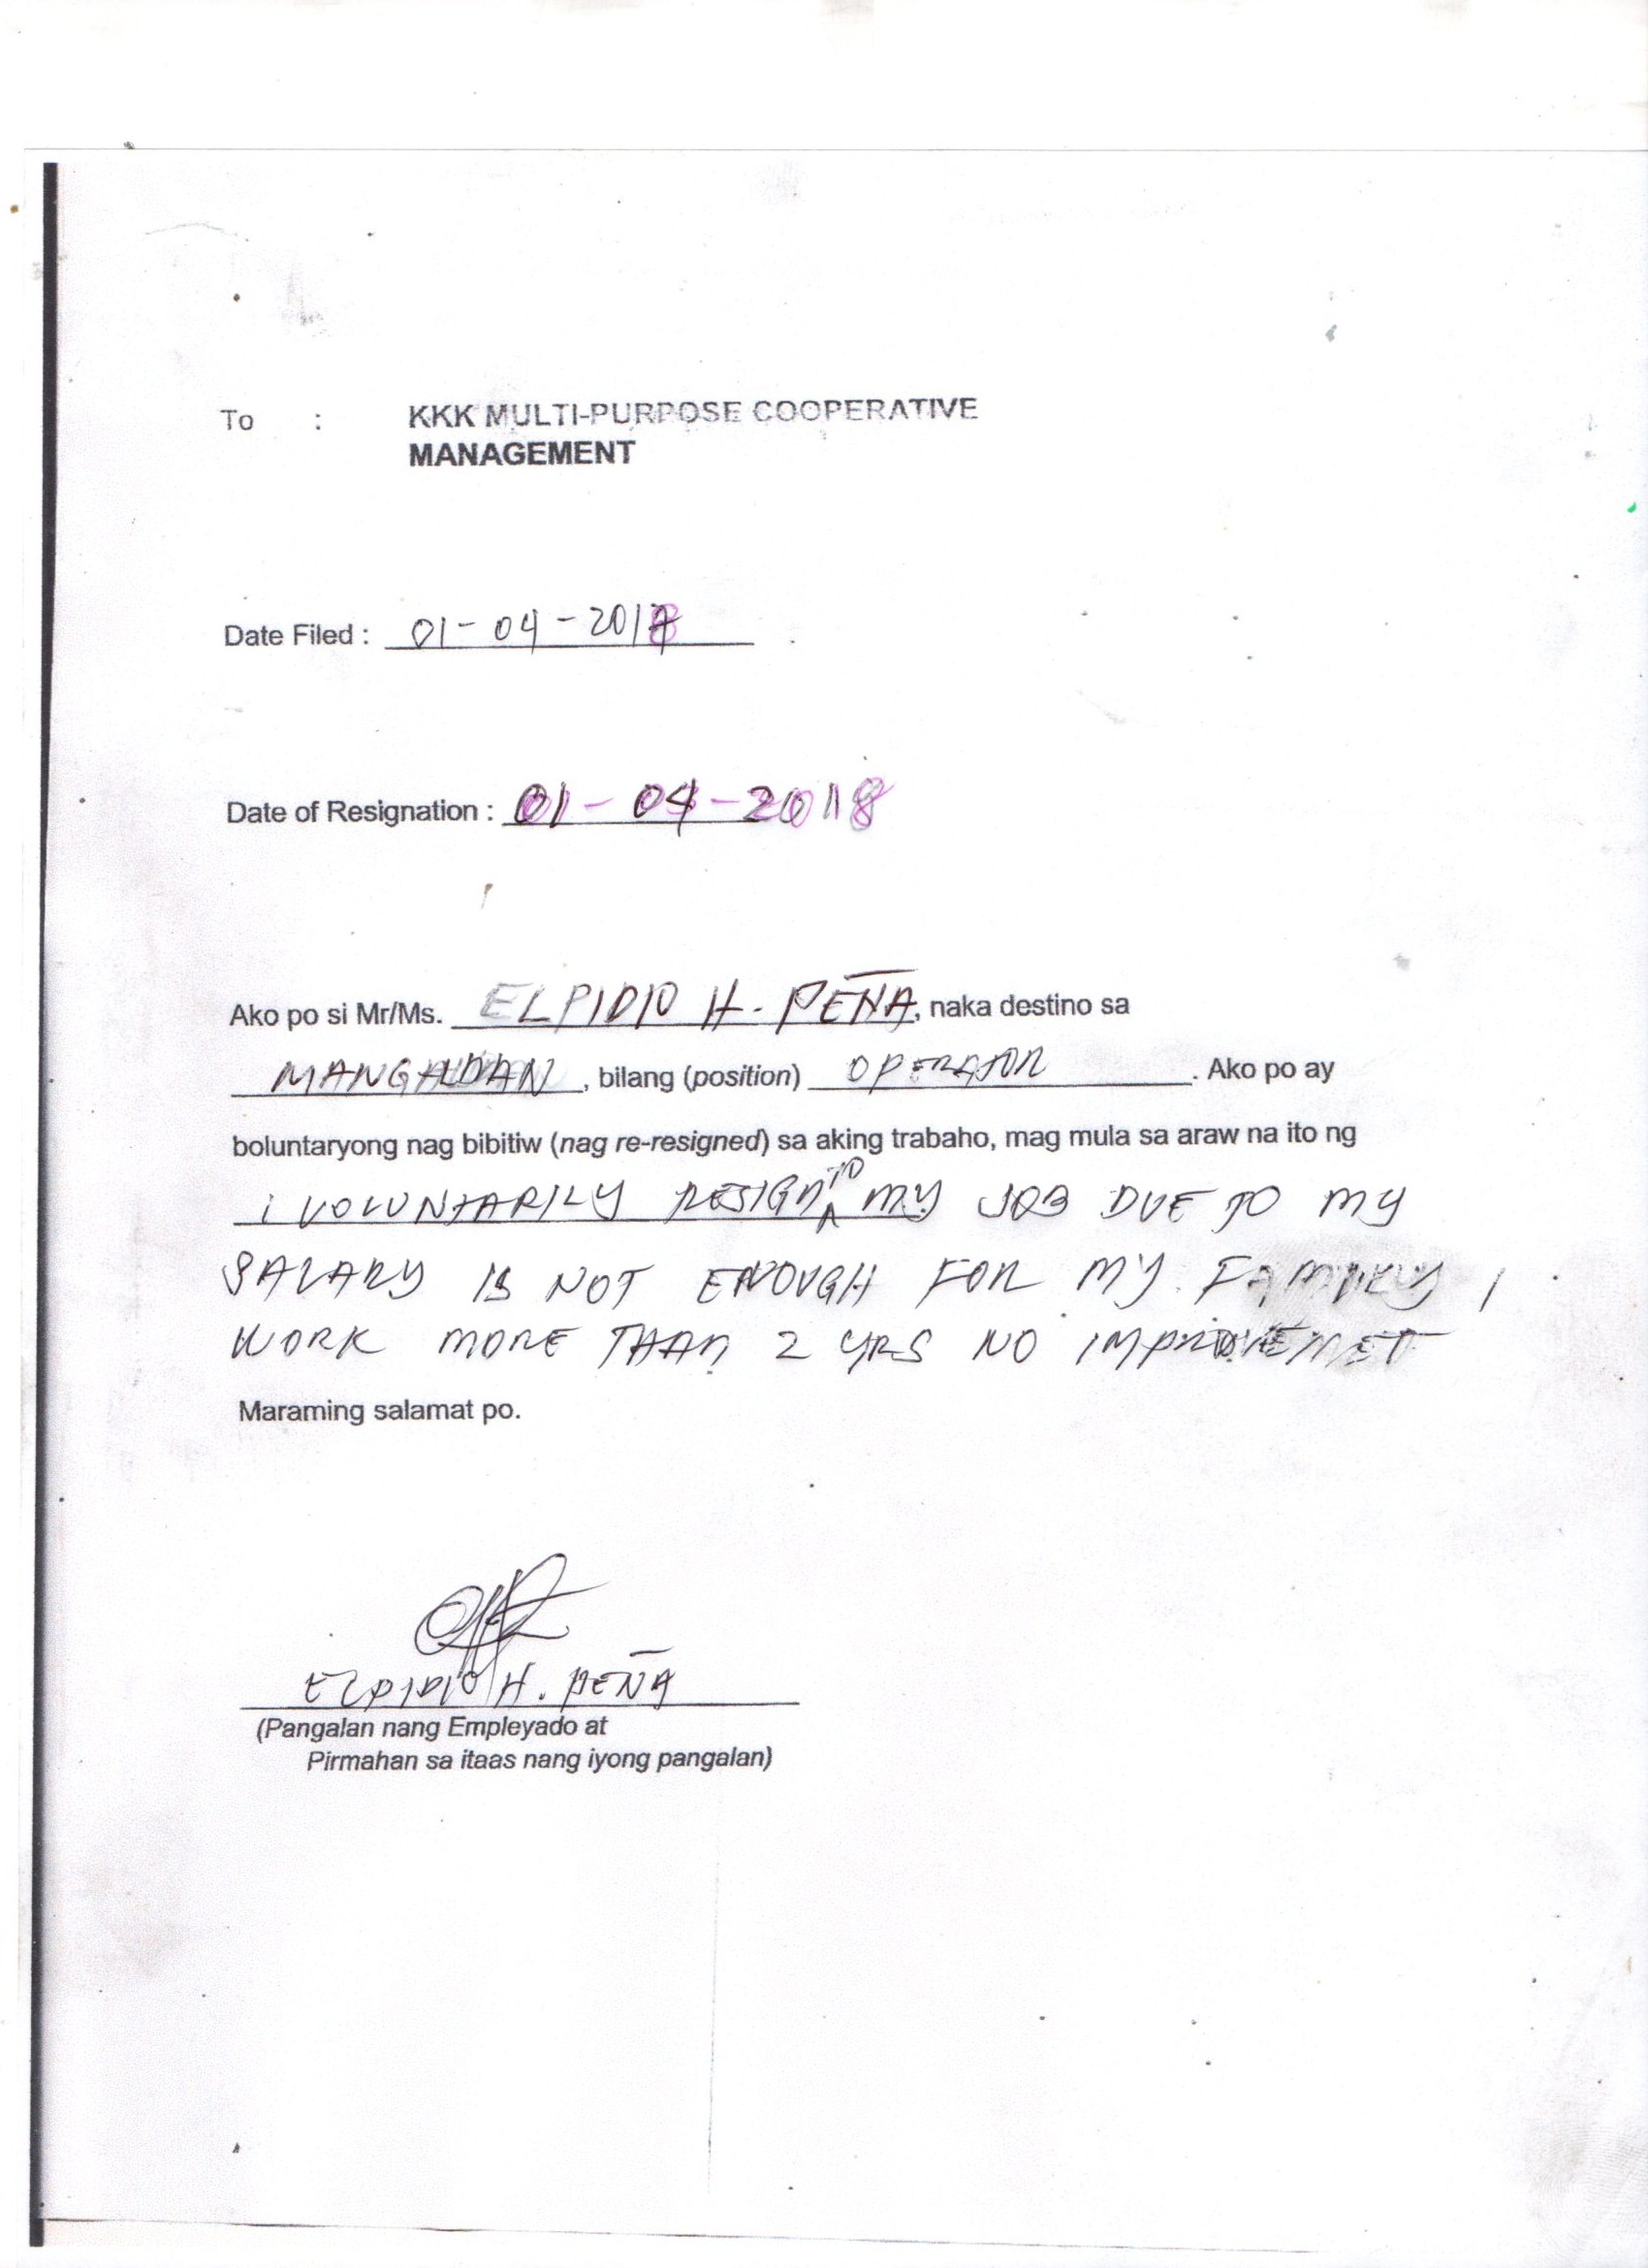 To : KKK MULTI-PURPOSE COOPERATIVE
MANAGEMENT
Date Filed : 01-04-2018
Date of Resignation : 01-04-2018
Ako po si Mr/Ms. ELPIDIO H. PEÑA, naka destino sa
MANGALDAN, bilang (position) OPERATOR. Ako po ay
boluntaryong nag bibitiw (nag re-resigned) sa aking trabaho, mag mula sa araw na ito ng
i VOLUNTARILY RESIGN TO MY JOB DUE TO MY
SALARY IS NOT ENOUGH FOR MY FAMILY I
WORK MORE THAN 2 YRS NO IMPROVEMET
Maraming salamat po.
ELPIDIO H. PEÑA
(Pangalan nang Empleyado at
Pirmahan sa itaas nang iyong pangalan)